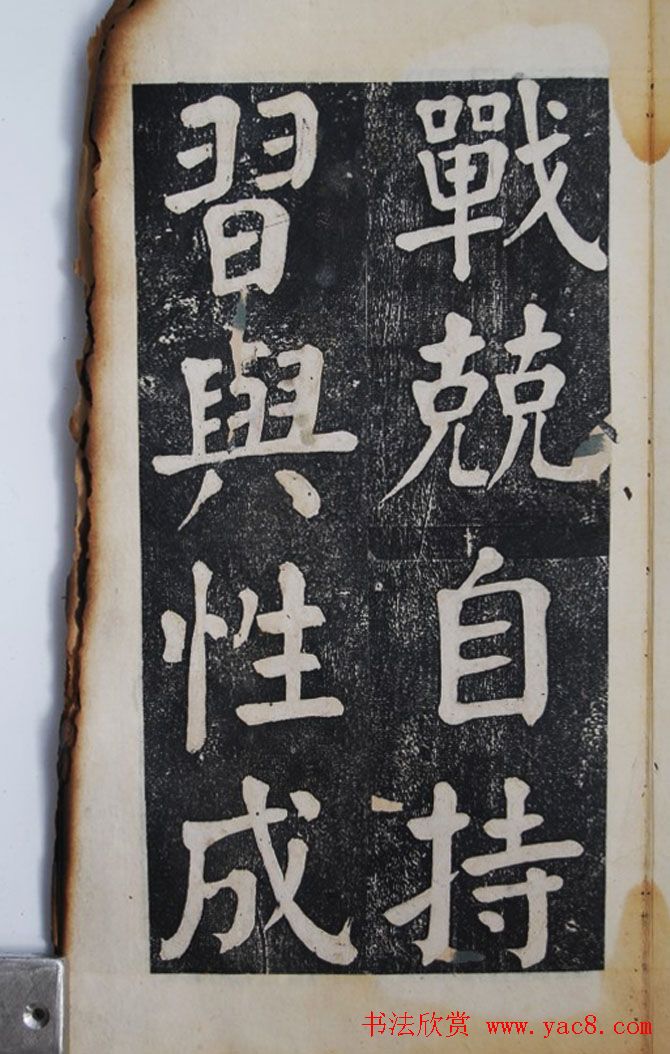 戰兢自持
習與性成
书法欣赏 www.yac8.com